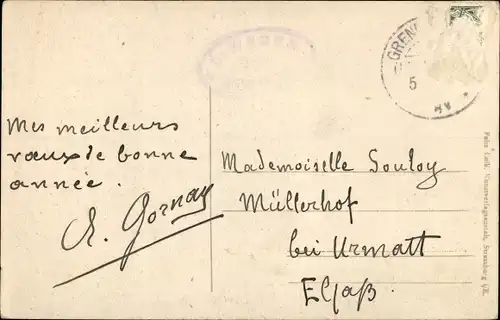 GREN
5
Mes meilleurs
vœux de bonne
année.
E. Gornay
Mademoiselle Souloy
Müllerhof
bei Urmatt
Elsaß.
Strassburg i/E.